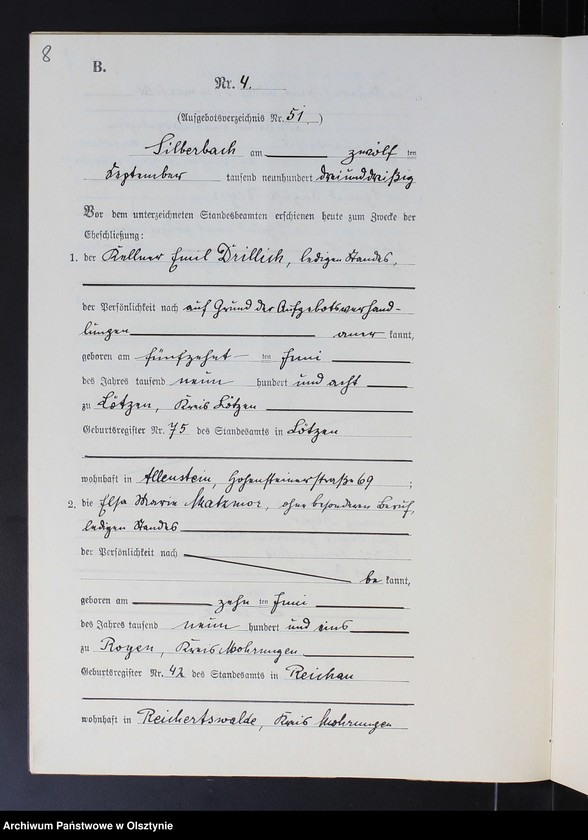 8
B.
Nr. 4.
(Aufgebotsverzeichnis Nr. 51.)
Silberbach am zwölf ten
September tausend neunhundert dreiunddreißig
Vor dem unterzeichneten Standesbeamten erschienen heute zum Zwecke der
Eheschließung:
1. der Kellner Emil Drillich, ledigen Standes,
der Persönlichkeit nach auf Grund der Aufgebotsverhand-
lungen aner kannt,
geboren am fünfzehnt ten Juni
des Jahres tausend neun hundert und acht
zu Lötzen, Kreis Lötzen
Geburtsregister Nr. 75 des Standesamts in Lötzen
wohnhaft in Allenstein, Hohensteinerstraße 69 ;
2. die Elsa Marie Matzmor, ohne besonderen Beruf,
ledigen Standes
der Persönlichkeit nach
be kannt,
geboren am zehn ten Juni
des Jahres tausend neun hundert und eins
zu Rogen, Kreis Mohrungen
Geburtsregister Nr. 42 des Standesamts in Reichau
wohnhaft in Reichertswalde, Kreis Mohrungen
Archiwum Państwowe w Olsztynie